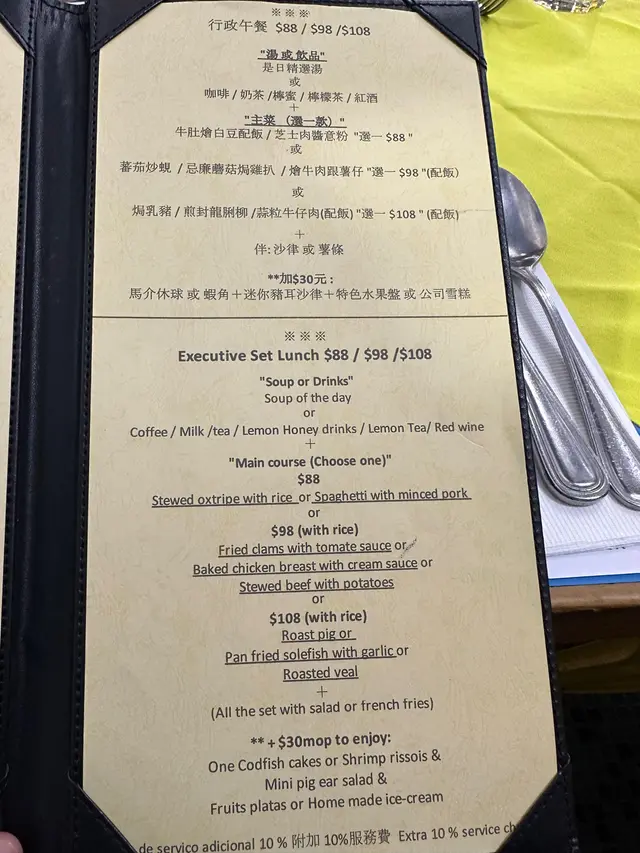 ※ ※ ※
行政午餐 $88 / $98 /$108
"湯 或 飲品"
是日精選湯
或
咖啡 / 奶茶 /檸蜜 / 檸檬茶 / 紅酒
+
"主菜 （選一款）"
牛肚燴白豆配飯 / 芝士肉醬意粉 "選一 $88 "
或
蕃茄炒蜆 / 忌廉蘑菇焗雞扒 / 燴牛肉跟薯仔 "選一 $98 "(配飯）
或
焗乳豬 / 煎封龍脷柳 /蒜粒牛仔肉(配飯) "選一 $108 " (配飯)
+
伴: 沙律 或 薯條
**加$30元 :
馬介休球 或 蝦角＋迷你豬耳沙律＋特色水果盤 或 公司雪糕
※ ※ ※
Executive Set Lunch $88 / $98 /$108
"Soup or Drinks"
Soup of the day
or
Coffee / Milk /tea / Lemon Honey drinks / Lemon Tea/ Red wine
+
"Main course (Choose one)"
$88
Stewed oxtripe with rice or Spaghetti with minced pork
or
$98 (with rice)
Fried clams with tomate sauce or
Baked chicken breast with cream sauce or
Stewed beef with potatoes
or
$108 (with rice)
Roast pig or
Pan fried solefish with garlic or
Roasted veal
+
(All the set with salad or french fries)
** + $30mop to enjoy:
One Codfish cakes or Shrimp rissois &
Mini pig ear salad &
Fruits platas or Home made ice-cream
de serviço adicional 10 % 附加 10%服務費 Extra 10 % service